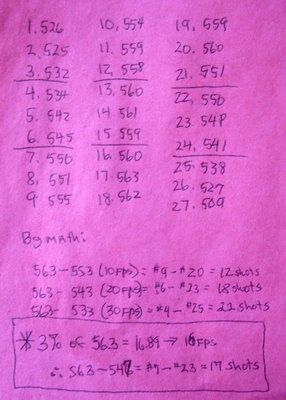 1. 526 10. 554 19. 559
2. 525 11. 559 20. 560
3. 532 12. 558 21. 551
4. 534 13. 560 22. 550
5. 542 14. 561 23. 548
6. 545 15. 559 24. 541
7. 550 16. 560 25. 538
8. 551 17. 563 26. 527
9. 555 18. 562 27. 509
By math:
563-553 (10 FPS) = #9-#20 = 12 shots
563-543 (20 FPS) = #6-#23 = 18 shots
563-533 (30 FPS) = #4-#25 = 22 shots
* 3% of 563 = 16.89 → 16 FPS
∴ 563-547 = #7-#23 = 17 shots